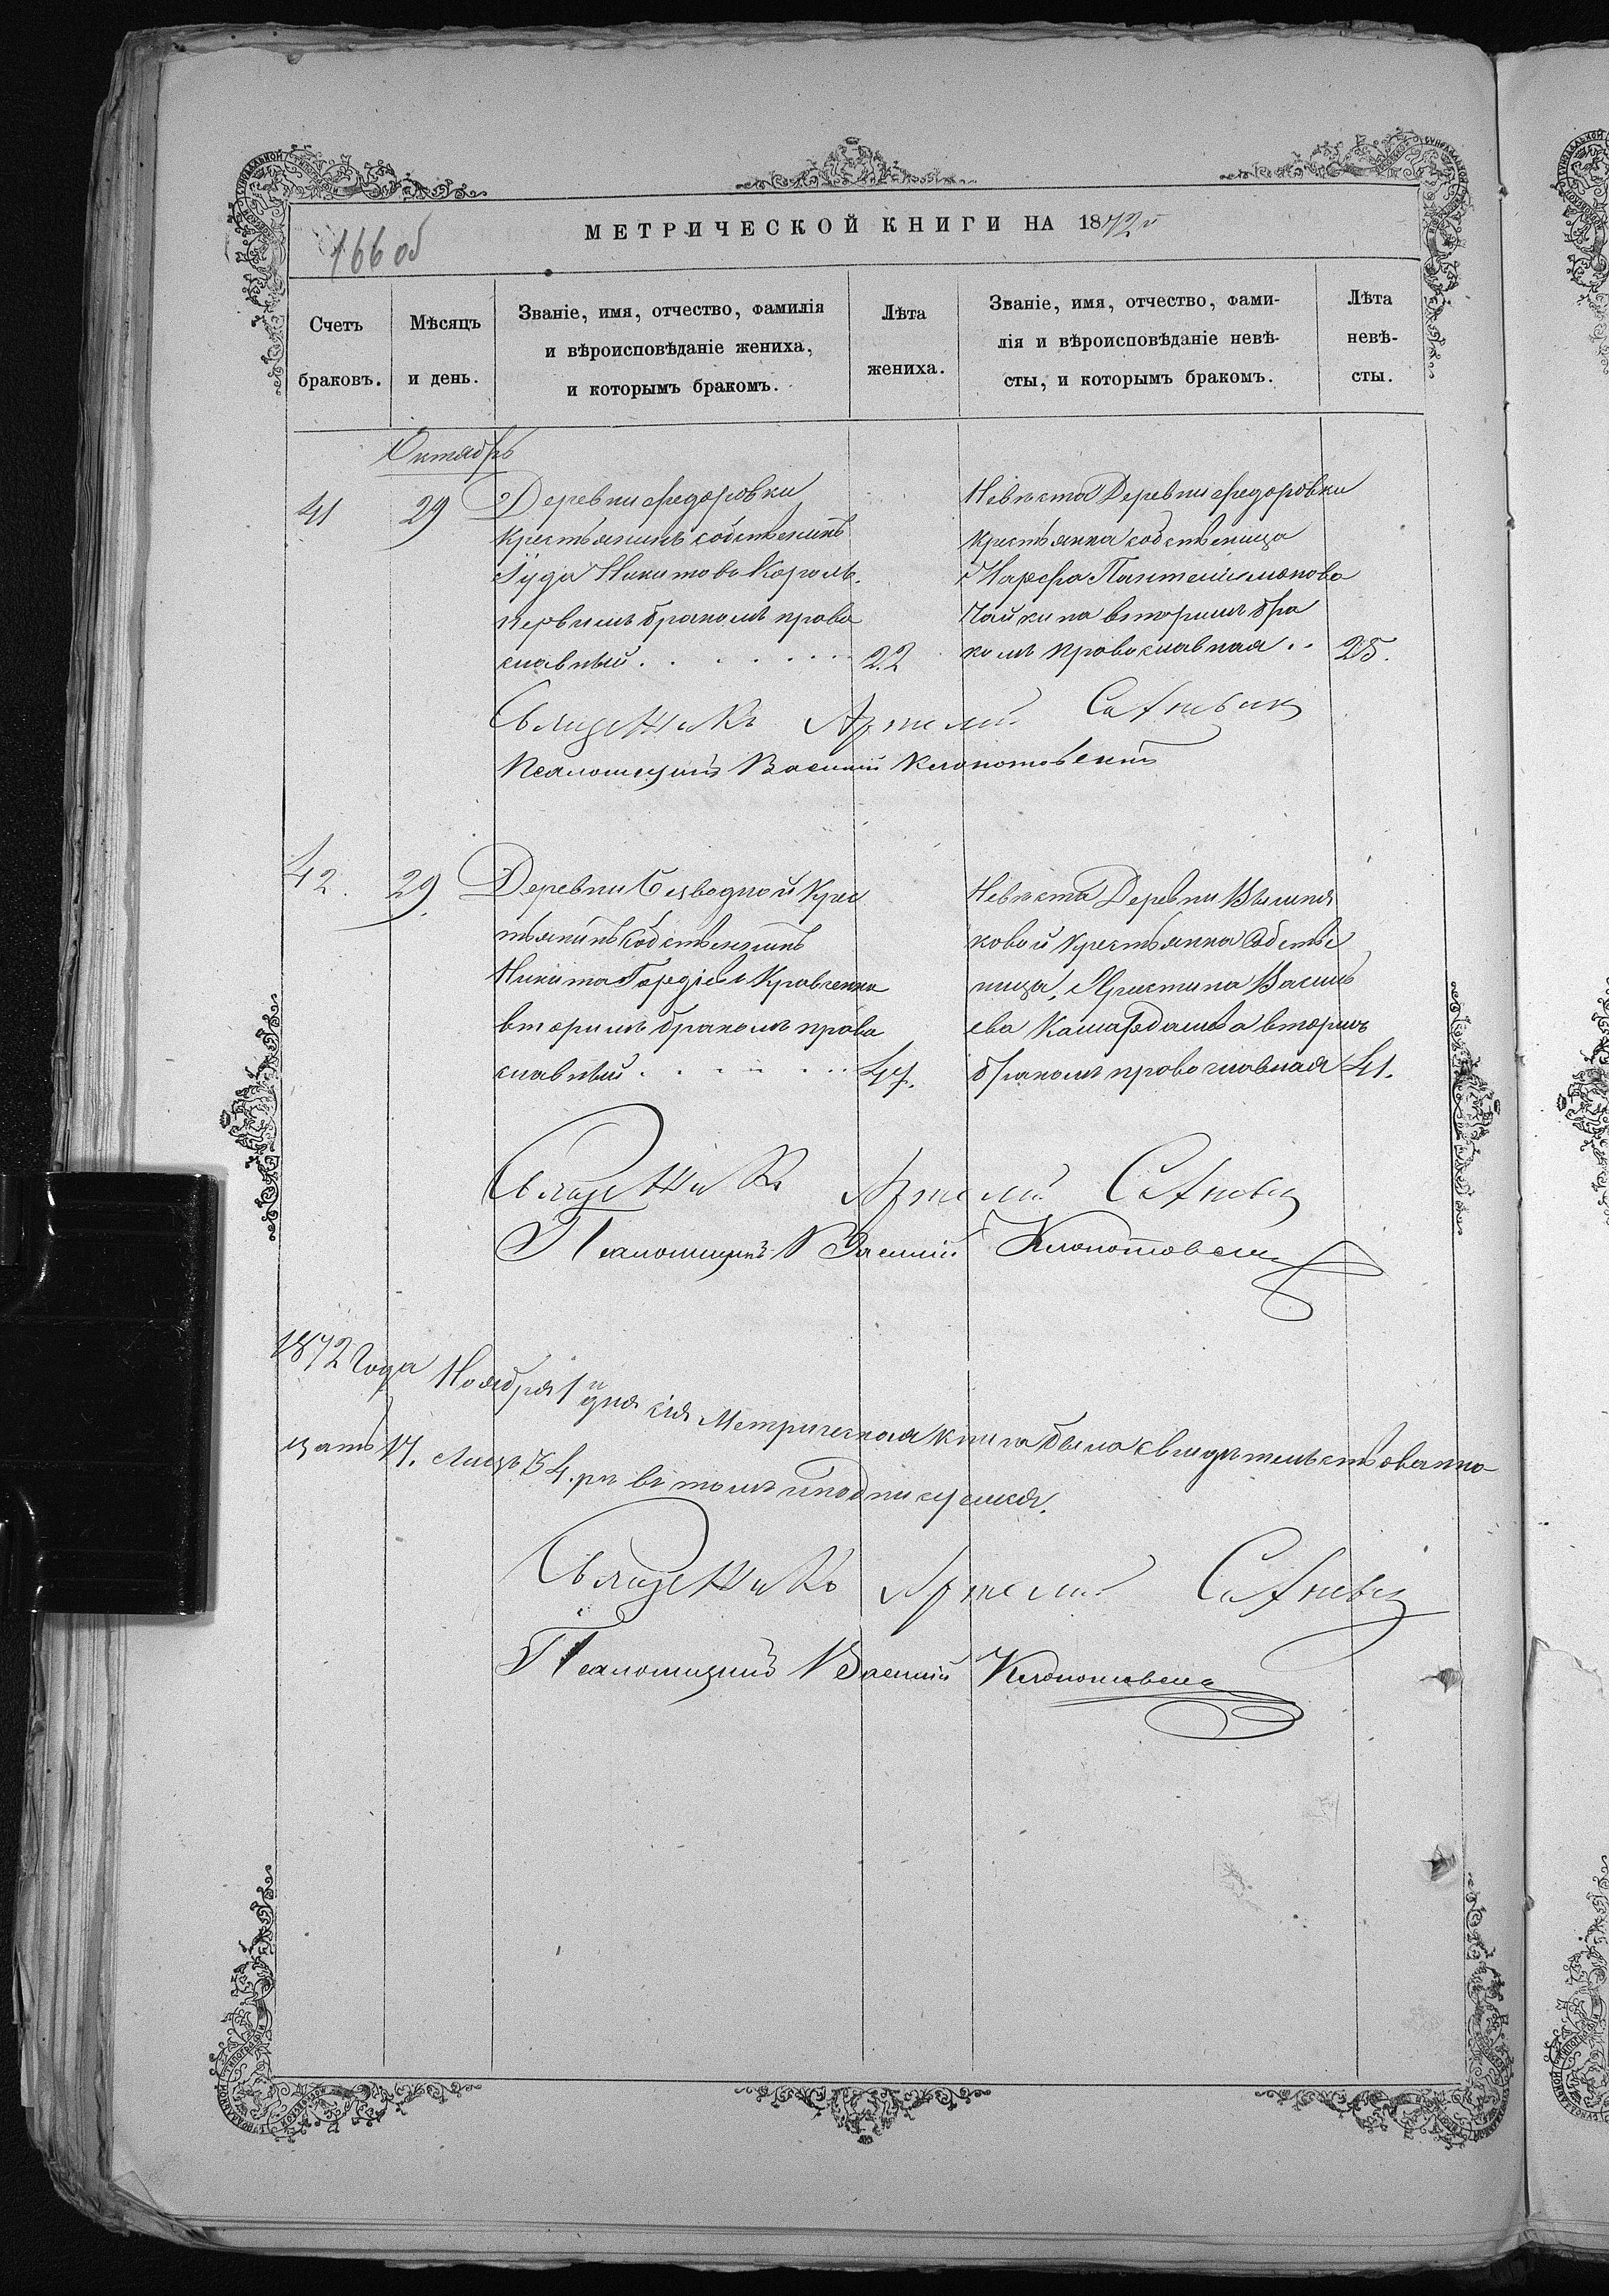 166 об
МЕТРИЧЕСКОЙ КНИГИ НА 1872й
Счетъ браковъ.
Мѣсяцъ и день.
Званіе, имя, отчество, фамилія
и вѣроисповѣданіе жениха,
и которымъ бракомъ.
Лѣта жениха.
Званіе, имя, отчество, фами-
лія и вѣроисповѣданіе невѣ-
сты, и которымъ бракомъ.
Лѣта невѣ-
сты.
Октябрь
41 29
Деревни Федоровки
Крестьянинъ собственикъ
Іуда Никитовъ Король.
первимъ бракомъ право
славный . . . . . . . 22
Невѣста Деревни Федоровки
крестьянка собственица
Марфа Пантелимонова
Чайкина вторимъ бра
комъ православная . . 25.
Священикъ Артемій
Псаломщикъ Василій Клопотовскій
42. 29.
Деревни Безводной Крес
тьянинъ Собственикъ
Никита Гордіевъ Кравченко
вторимъ бракомъ право
славный . . . . . . 47.
Невѣста Деревни Вышня
ковой Крестьянка Собстве
ница, Христина Василь
ева вторимъ
бракомъ православная 41.
Священикъ Артемій
Псаломщикъ Василій Клопотовскій
1872 Года Ноября 1й дня сія Метрическая книга была свидѣтельствованна
въ томъ и подписуемся.
Священикъ Артемій
Псаломщикъ Василій Клопотовскій